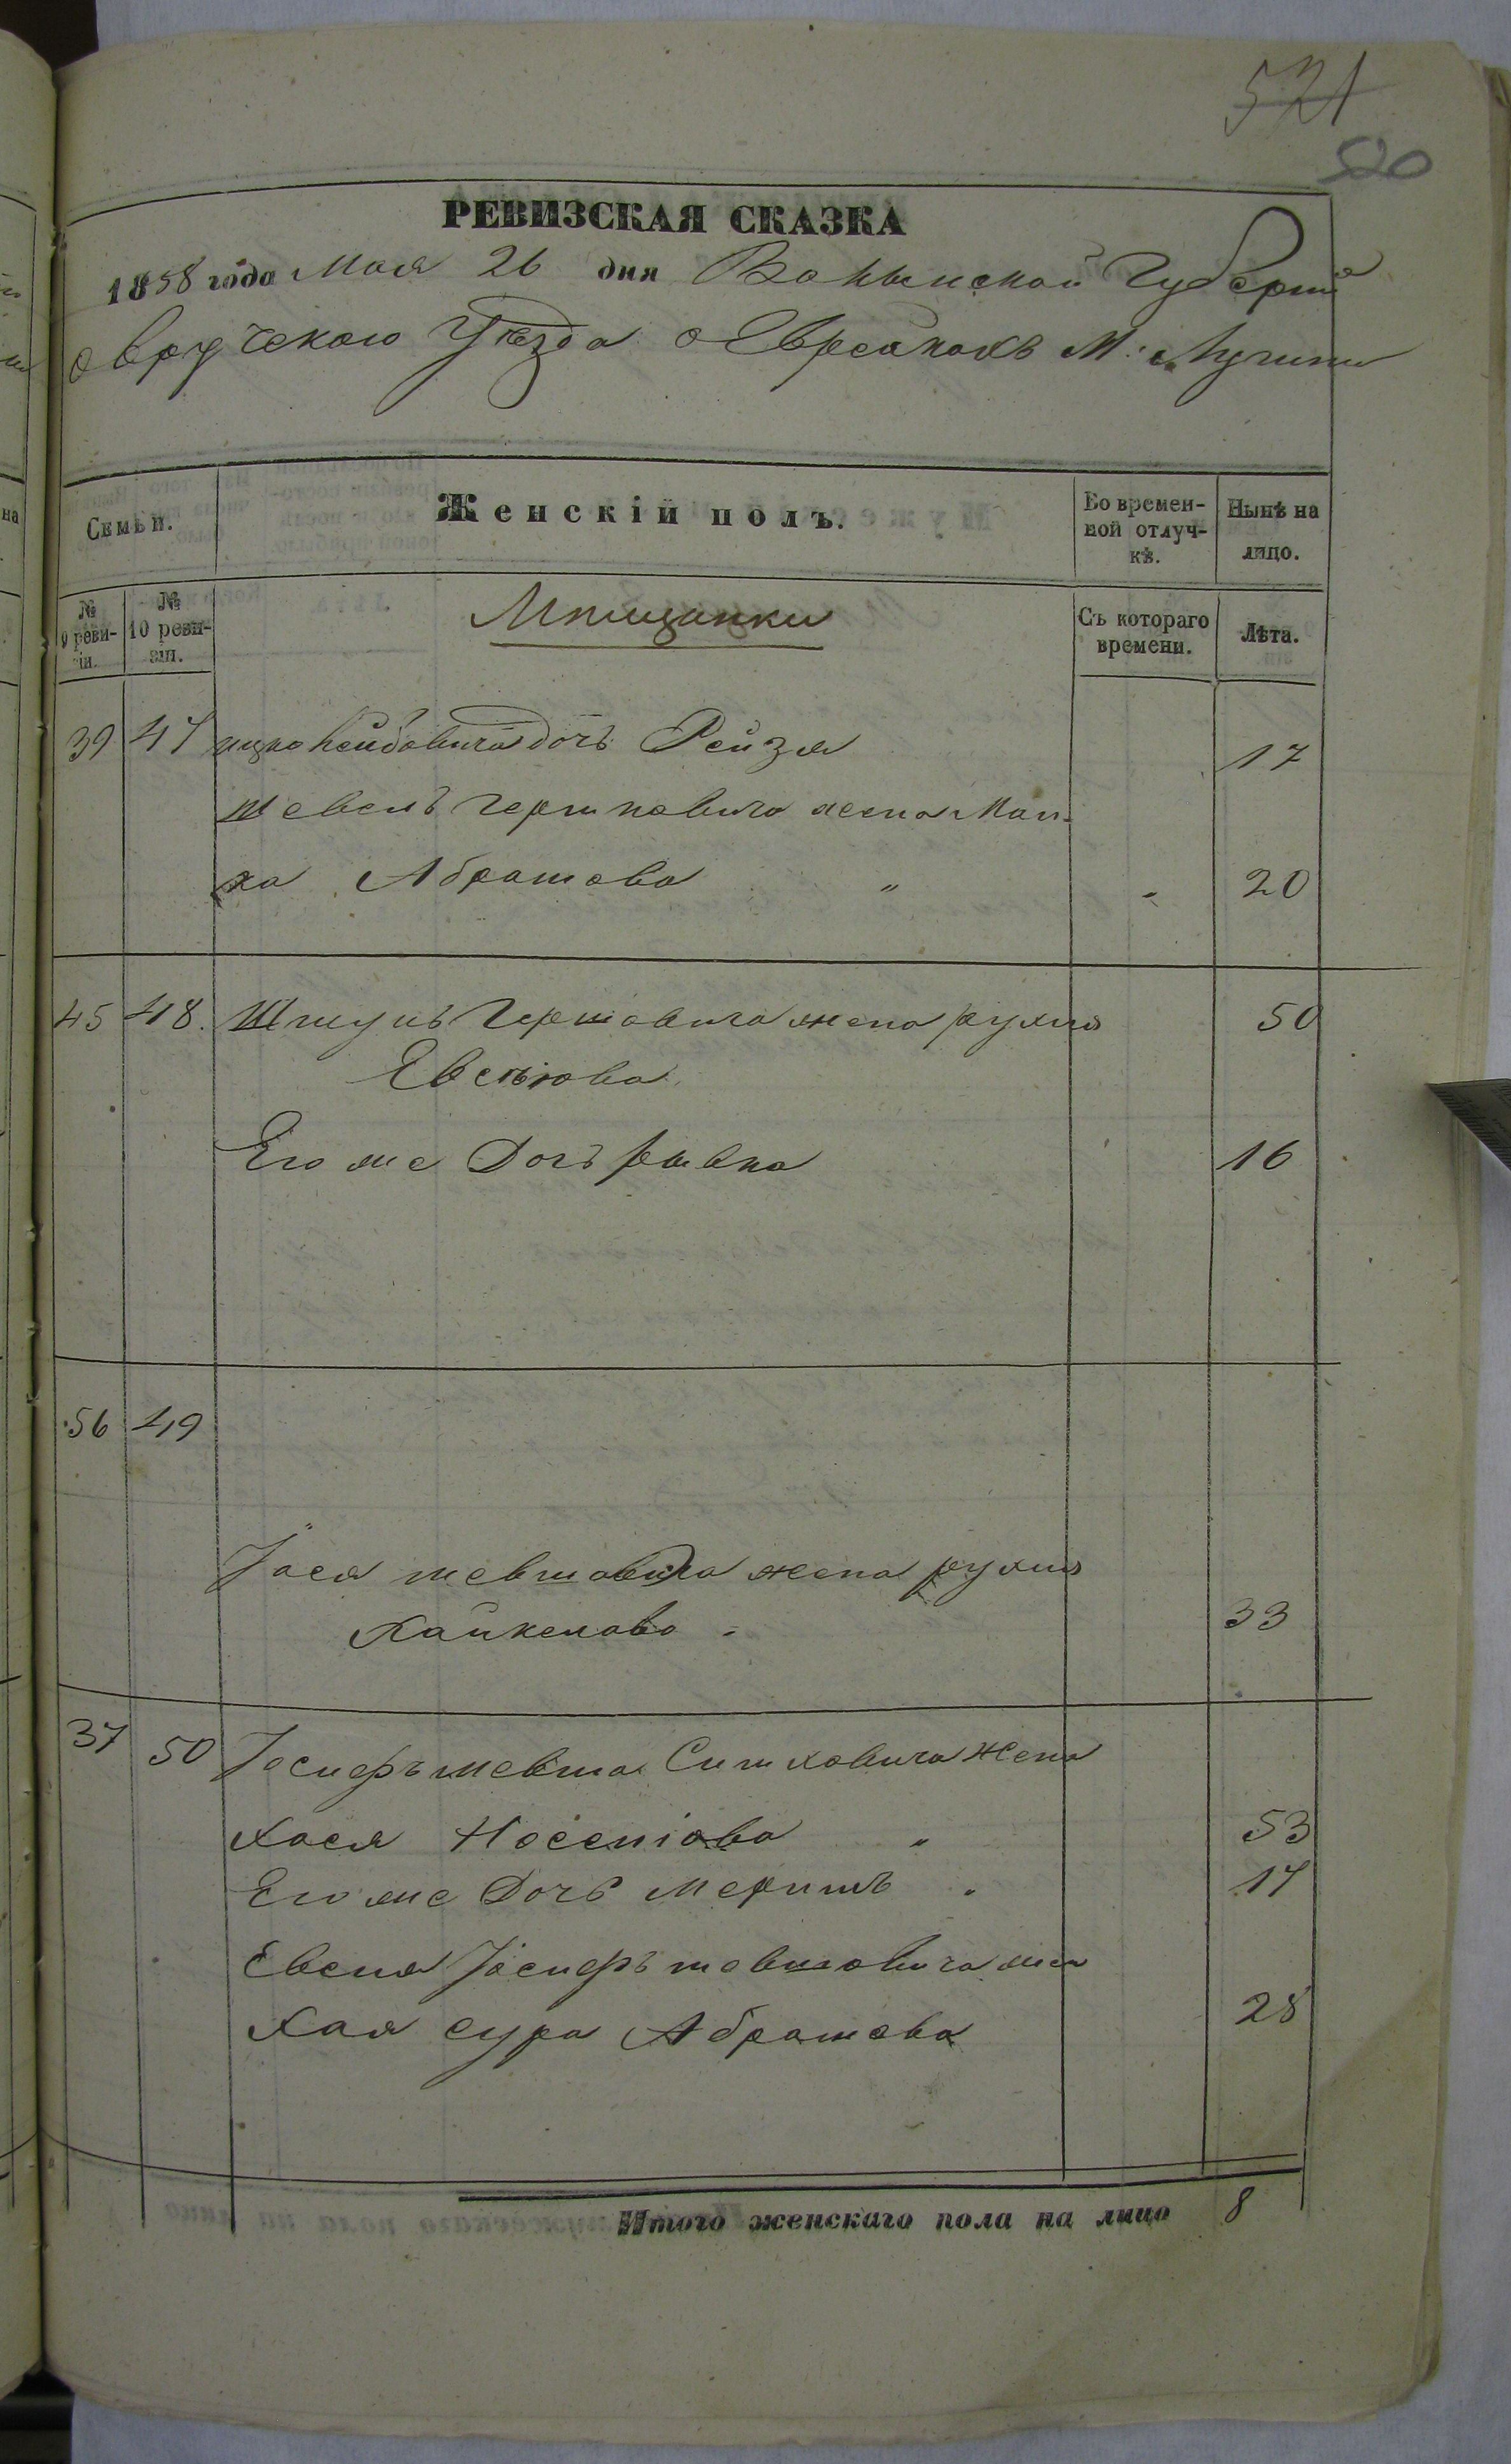 521
520
РЕВИЗСКАЯ СКАЗКА
1858 года Мая 26 дня Волынской Губерніи
Овручского Уезда о Евреахъ М: Лугинъ
Семьи. Женскій полъ. Во времен-ной отлуч-кѣ. Нынѣ на лицо.
№ 9 реви-зіи. № 10 реви-зіи. Мѣщанки Съ котораго времени. Лѣта.
39 47 Ицко Лейбовича дочь Рейзя 17
Шевель Гершковича жена Мал-
ка Абрамова " - 20
45 48. Шмуль Гершовича жена рухля 50
Евелюва
Его же Дочь ривка 16
56 49
Іося шевшовича жена рухля
Хайкелова - 33
37 50 Іосифъ шевша Симховича Жена
Хася Носеніова " 53
Его же Дочь Меримъ 17
Евеля Іосифъ шевшовича же
Хая сура Абрамова 28
Итого женскаго пола на лицо 8